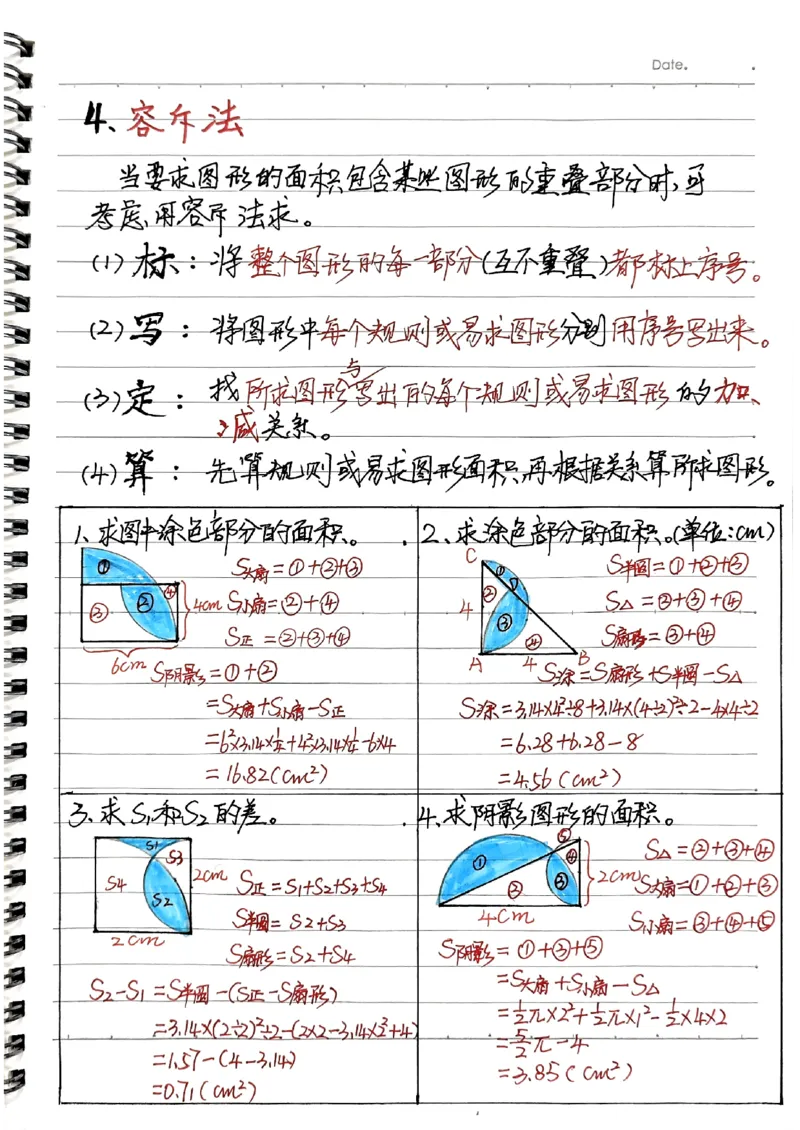 Date.
4、容斥法
当要求图形的面积包含某些图形的重叠部分时,可
考虑用容斥法求。
(1)标：将整个图形的每一部分(互不重叠)都标上序号。
(2)写：将图形中每个规则或易求图形分别用序号写出来。
(3)定：找所求图形与写出的每个规则或易求图形的加、
减关系。
(4)算：先算规则或易求图形面积,再根据关系算所求图形。
1、求图中涂色部分的面积。
① ② ③ ④
4cm
6cm
S大扇=①+②+③
S小扇=②+④
S正=②+③+④
S阴影=①+②
=S大扇+S小扇-S正
=6²×3.14×¼+4²×3.14×¼-6×4
=16.82(cm²)
2、求涂色部分的面积。(单位:cm)
C
① ② ③ ④
4
A 4 B
S半圆=①+②+③
S△=②+③+④
S扇形=③+④
S涂=S扇形+S半圆-S△
S涂=3.14×4²÷8+3.14×(4÷2)²÷2-4×4÷2
=6.28+6.28-8
=4.56(cm²)
3、求S1和S2的差。
S1
S3
S4
S2
2cm
2cm
S正=S1+S2+S3+S4
S半圆=S2+S3
S扇形=S2+S4
S2-S1=S半圆-(S正-S扇形)
=3.14×(2÷2)²÷2-(2×2-3.14×2²÷4)
=1.57-(4-3.14)
=0.71(cm²)
4、求阴影图形的面积。
① ② ③ ④ ⑤
2cm
4cm
S△=②+③+④
S大扇=①+②+③
S小扇=③+④+⑤
S阴影=①+③+⑤
=S大扇+S小扇-S△
=½π×2²+½π×1²-½×4×2
=5/2π-4
=3.85(cm²)